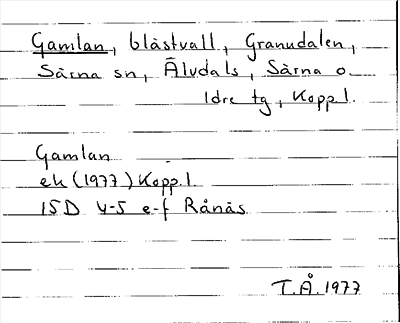 Gamlan, blåstvall, Granudalen,
Särna sn, Älvdals, Särna o
Idre tg, Kopp l.
Gamlan
ek (1977) Kopp l
15D 4-5 e-f Rånäs
T.Å. 1977